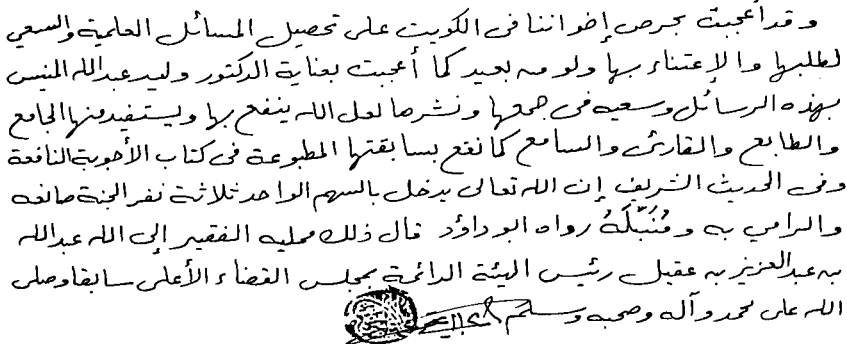 وقد أعجبت بحرص إخواننا فى الكويت على تحصيل المسائل العلمية والسعي
لطلبها والإعتناء بها ولو من بعيد كما أعجبت بعناية الدكتور وليد عبدالله المنيس
بهذه الرسائل وسعيه فى جمعها ونشرها لعل الله ينفع بها ويستفيد منها الجامع
والطابع والقارئ والسامع كما نفع بسابقتها المطبوعة فى كتاب الأجوبة النافعة
وفى الحديث الشريف إن الله تعالى يدخل بالسهم الواحد ثلاثة نفر الجنة صانعه
والرامي به ومُنَبّلَهُ رواه ابو داؤد قال ذلك ممليه الفقير إلى الله عبدالله
بن عبدالعزيز بن عقيل رئيس الهيئة الدائمة بمجلس القضاء الأعلى سابقا وصلى
الله على محمد وآله وصحبه وسلم